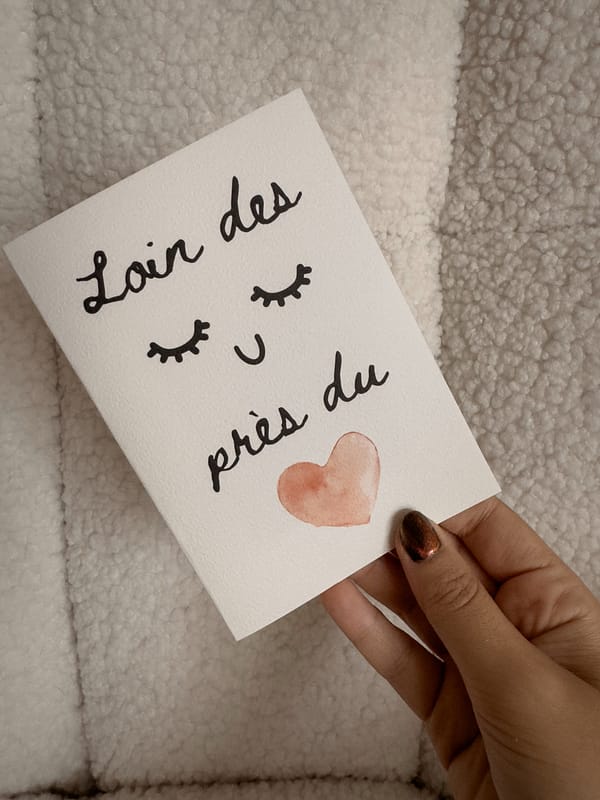 Loin des
près du